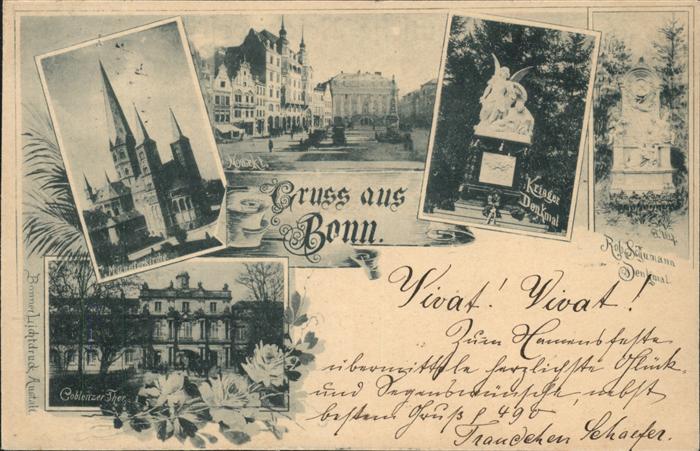 Markt.
Gruss aus
Bonn.
Krieger
Denkmal
Rob. Schumann
Denkmal.
Münsterkirche
Coblenzer Thor.
Bonner Lichtdruck Anstalt.
Vivat! Vivat!
Zum Namensfeste
übermittele herzlichste Glück-
und Segenswünsche, nebst
bestem Gruß
Traudchen Schaefer.